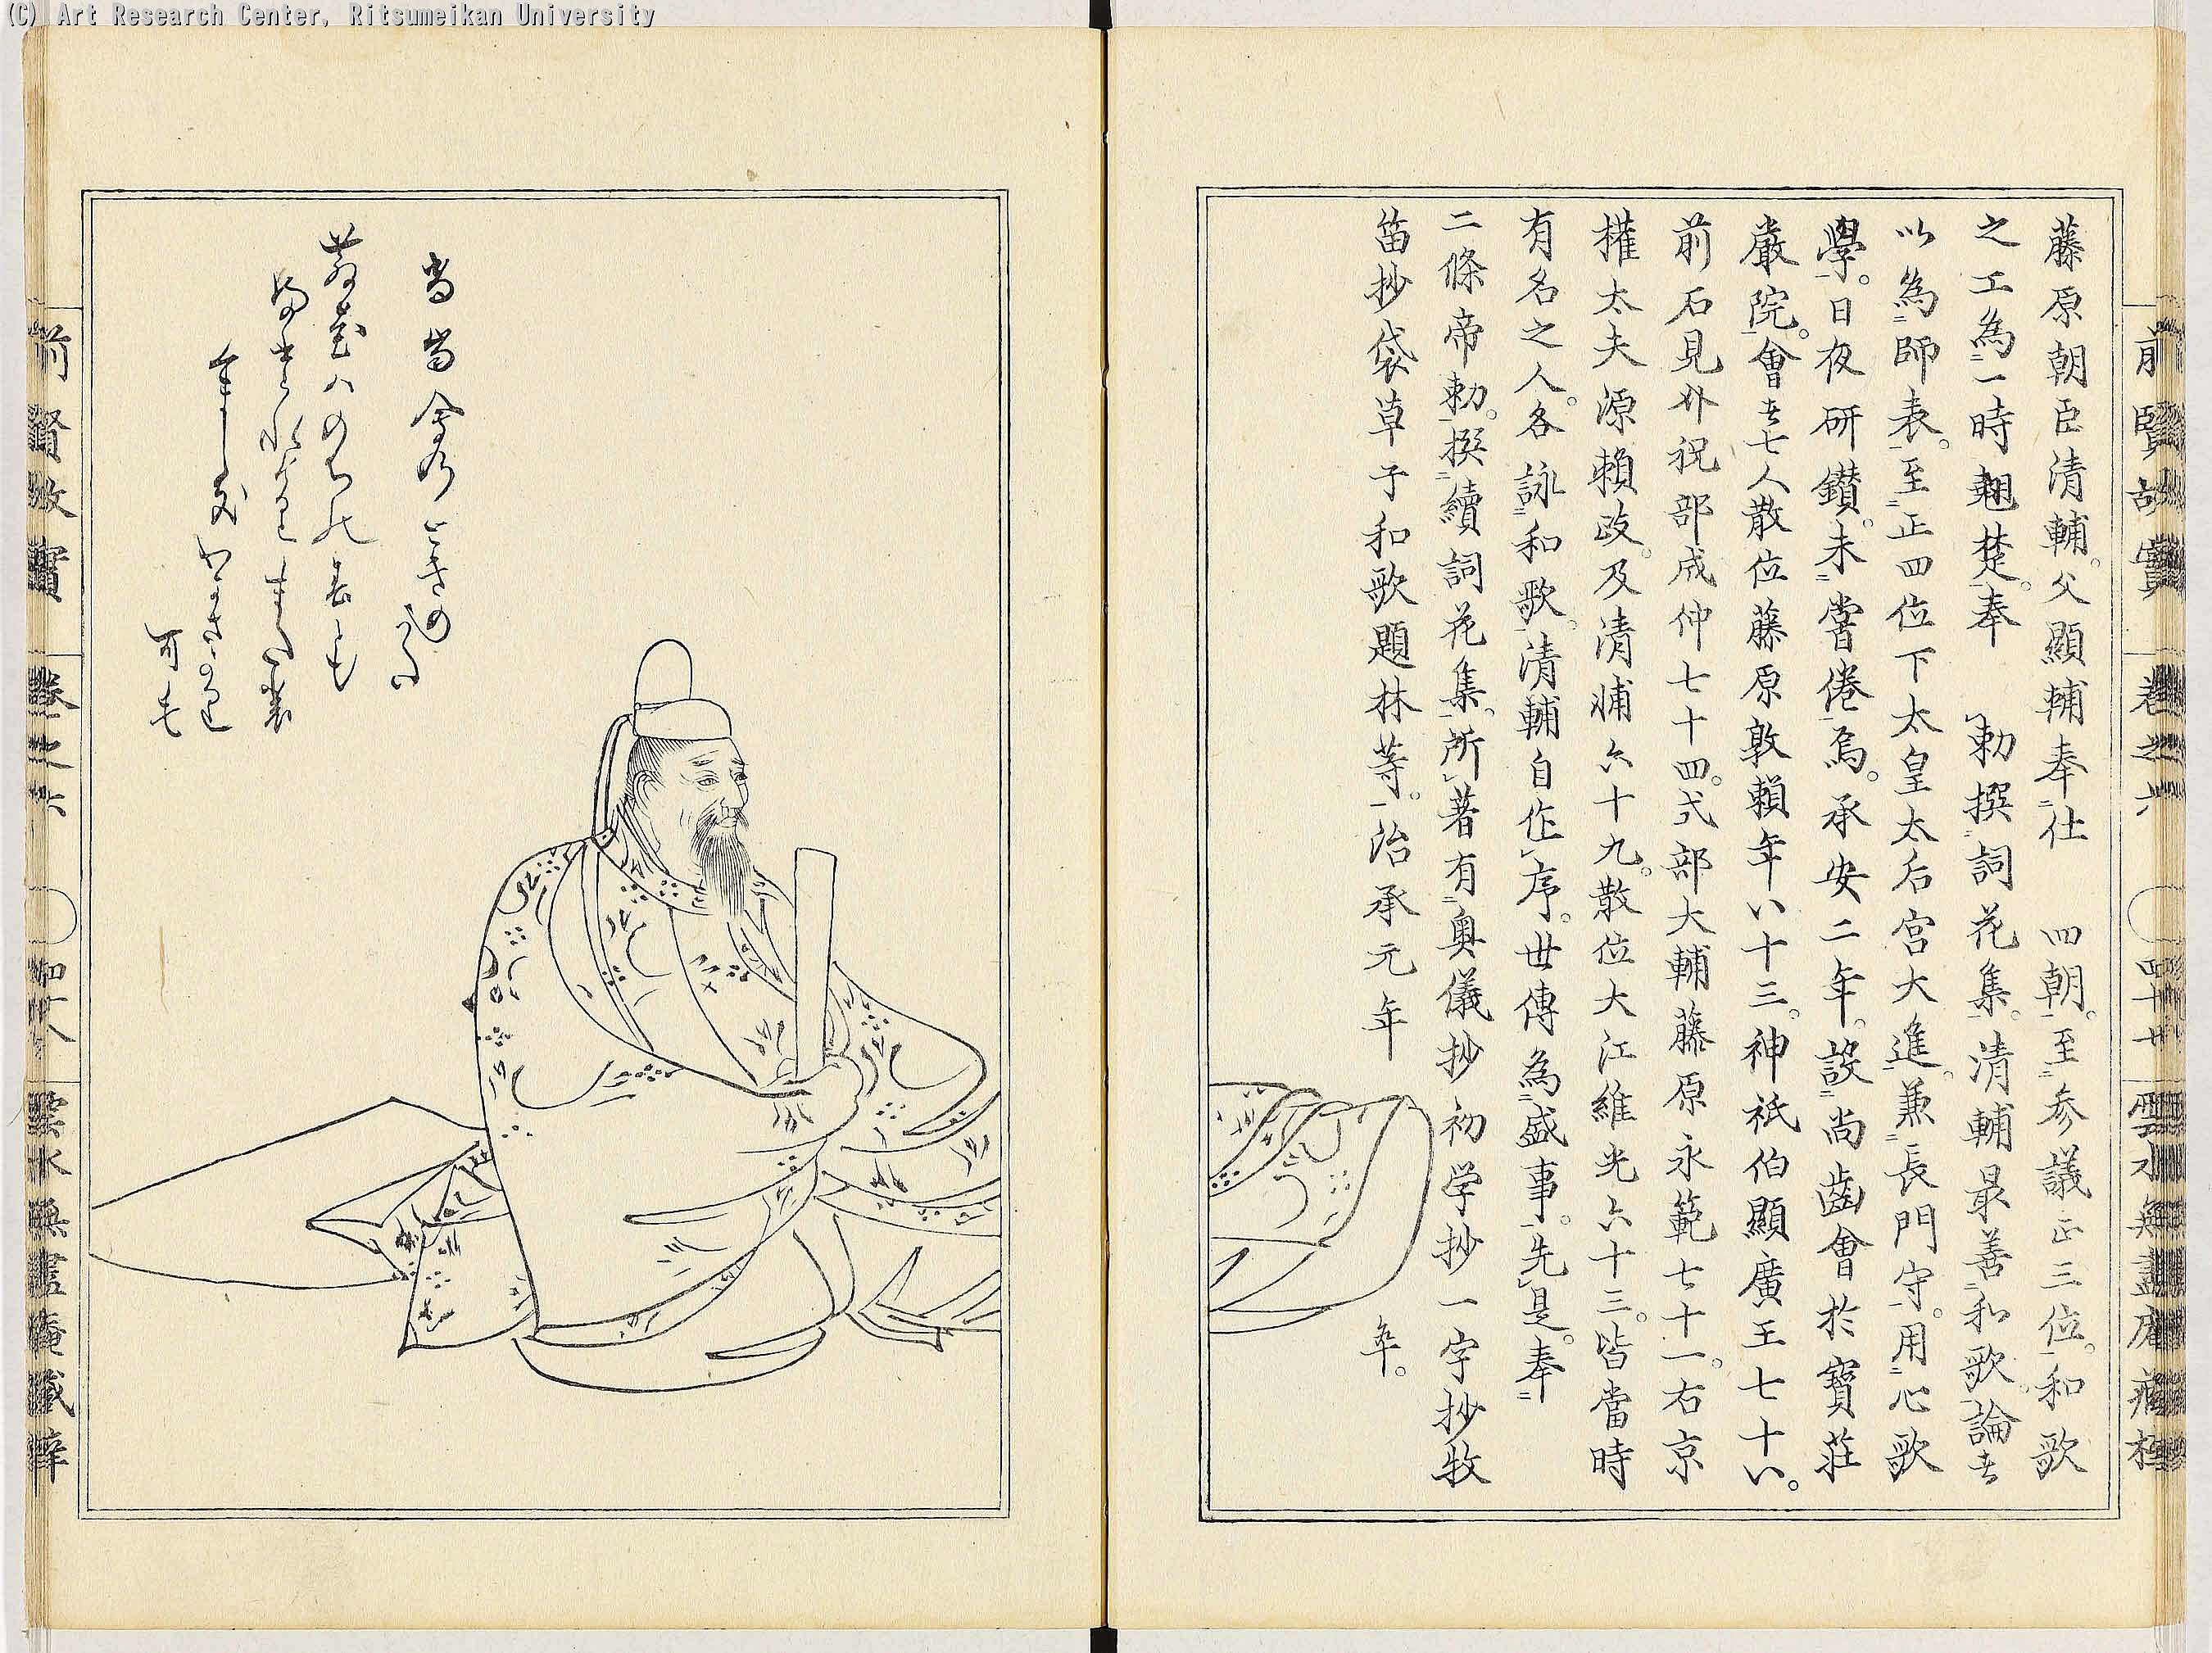 (C) Art Research Center, Ritsumeikan University
前賢故實 卷之六 四十七 雲水無盡庵藏梓
藤原朝臣清輔。父顯輔奉仕 四朝。至參議正三位。和歌
之工為一時翹楚。奉 勅撰詞花集。清輔最善和歌。論者
以為師表。至正四位下太皇太后宮大進。兼長門守。用心歌
學。日夜研鑚。未嘗倦焉。承安二年。設尚齒會於寶莊
嚴院。會者七人散位藤原敦賴年八十三。神祇伯顯廣王七十八。
前石見介祝部成仲七十四。式部大輔藤原永範七十一。右京
權太夫源賴政。及清輔六十九。散位大江維光六十三。皆當時
有名之人。各詠和歌。清輔自作序。世傳為盛事。先是。奉
二條帝勅。撰續詞花集。所著有奧儀抄初学抄一字抄牧
笛抄袋草子和歌題林等。治承元年 卒。
前賢故實 卷之六 雲水無盡庵藏梓